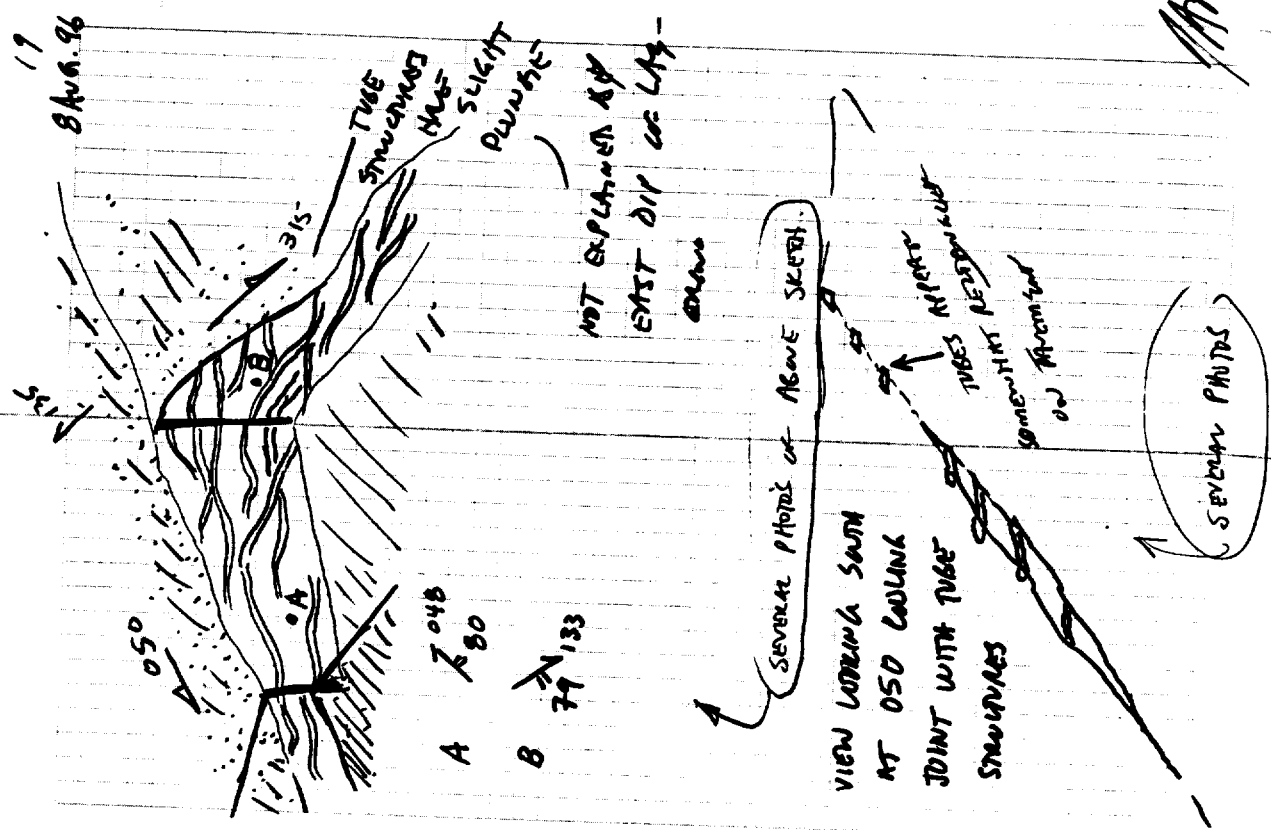 19
8 AUG. 96
135
050
315
TUBE
STRUCTURES
HAVE
SLIGHT
PLUNGE
NOT EXPLAINED BY
EAST DIP OF
B
A
A 048
80
B 133
79
SEVERAL PHOTOS OF ABOVE SKETCH.
VIEW LOOKING SOUTH
AT 050 COOLING
JOINT WITH TUBE
STRUCTURES
TUBES APPEAR
SOMEWHAT RECTANGULAR
ON
SEVERAL PHOTOS